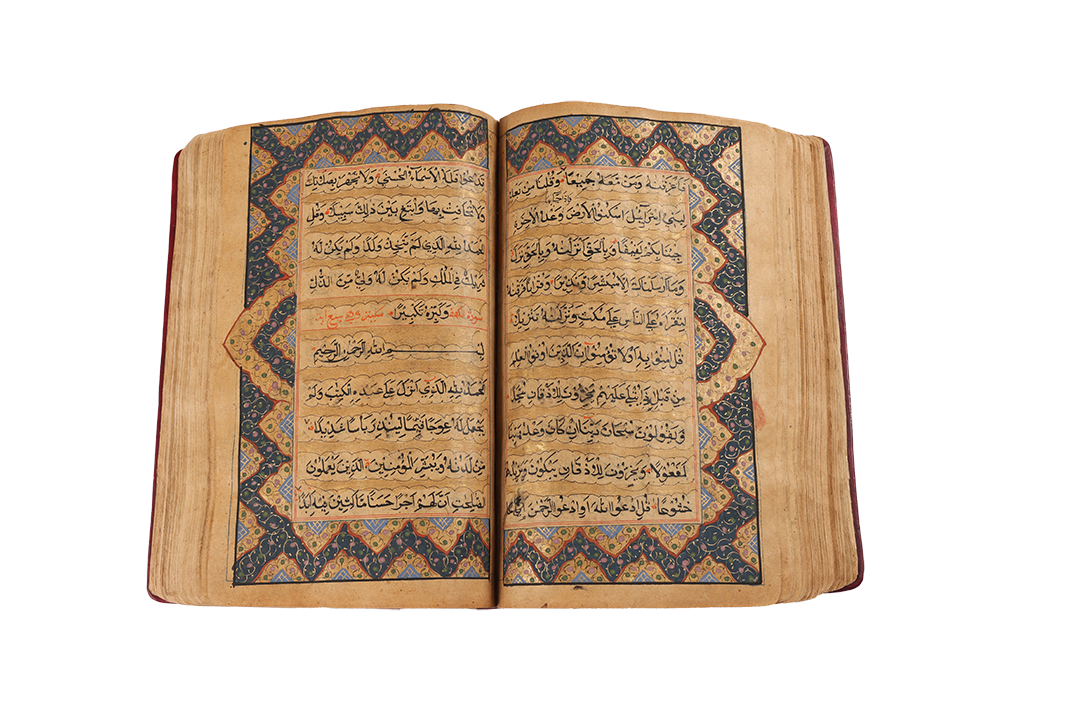 فَاَغْرَقْنٰهُ وَمَنْ مَعَهُ جَمِيْعًا وَقُلْنَا مِنْ بَعْدِهِ
لِبَنِيْ اِسْرَائِيْلَ اسْكُنُوا الْاَرْضَ فَاِذَا جَاءَ وَعْدُ الْاٰخِرَةِ
جِئْنَا بِكُمْ لَفِيْفًا وَبِالْحَقِّ اَنْزَلْنٰهُ وَبِالْحَقِّ نَزَلَ
وَمَا اَرْسَلْنَاكَ اِلَّا مُبَشِّرًا وَنَذِيْرًا وَقُرْاٰنًا فَرَقْنٰهُ
لِتَقْرَاَهُ عَلَى النَّاسِ عَلٰى مُكْثٍ وَنَزَّلْنٰهُ تَنْزِيْلًا
قُلْ اٰمِنُوْا بِهِ اَوْ لَا تُؤْمِنُوْا اِنَّ الَّذِيْنَ اُوْتُوا الْعِلْمَ
مِنْ قَبْلِهِ اِذَا يُتْلٰى عَلَيْهِمْ يَخِرُّوْنَ لِلْاَذْقَانِ سُجَّدًا
وَيَقُوْلُوْنَ سُبْحَانَ رَبِّنَا اِنْ كَانَ وَعْدُ رَبِّنَا
لَمَفْعُوْلًا وَيَخِرُّوْنَ لِلْاَذْقَانِ يَبْكُوْنَ وَيَزِيْدُهُمْ
خُشُوْعًا قُلِ ادْعُوا اللهَ اَوِ ادْعُوا الرَّحْمٰنَ اَيًّا مَا
تَدْعُوْا فَلَهُ الْاَسْمَاءُ الْحُسْنٰى وَلَا تَجْهَرْ بِصَلٰوتِكَ
وَلَا تُخَافِتْ بِهَا وَابْتَغِ بَيْنَ ذٰلِكَ سَبِيْلًا وَقُلِ
الْحَمْدُ لِلّٰهِ الَّذِيْ لَمْ يَتَّخِذْ وَلَدًا وَلَمْ يَكُنْ لَهُ
شَرِيْكٌ فِي الْمُلْكِ وَلَمْ يَكُنْ لَهُ وَلِيٌّ مِنَ الذُّلِّ
سورة الكهف وَكَبِّرْهُ تَكْبِيْرًا
بِسْمِ اللهِ الرَّحْمٰنِ الرَّحِيْمِ
اَلْحَمْدُ لِلّٰهِ الَّذِيْ اَنْزَلَ عَلٰى عَبْدِهِ الْكِتٰبَ وَلَمْ
يَجْعَلْ لَهُ عِوَجًا قَيِّمًا لِيُنْذِرَ بَاْسًا شَدِيْدًا
مِنْ لَدُنْهُ وَيُبَشِّرَ الْمُؤْمِنِيْنَ الَّذِيْنَ يَعْمَلُوْنَ
الصّٰلِحٰتِ اَنَّ لَهُمْ اَجْرًا حَسَنًا مَاكِثِيْنَ فِيْهِ اَبَدًا